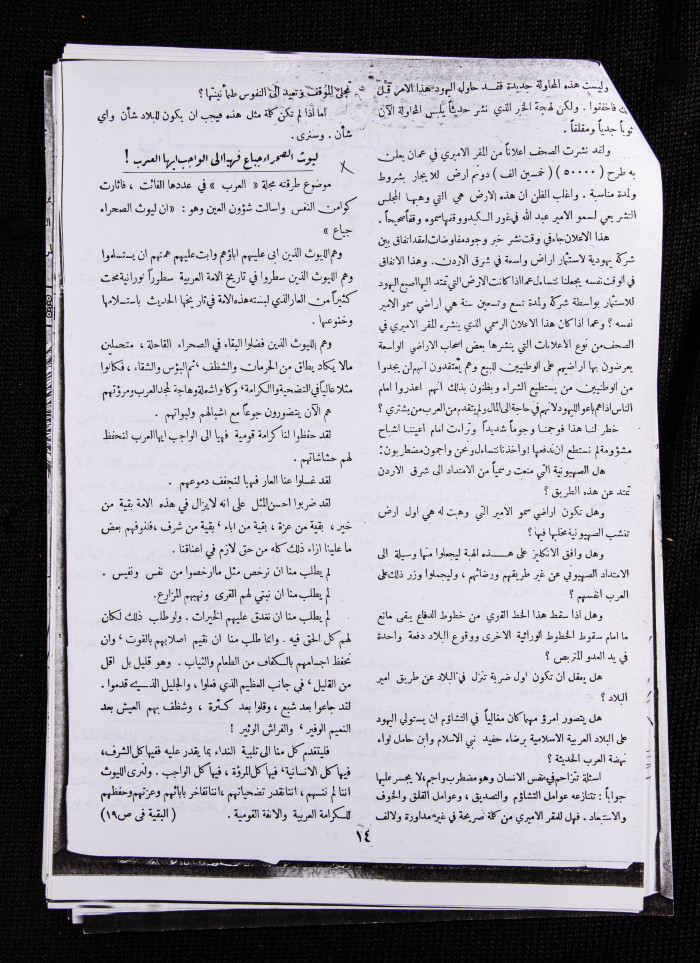 وليست هذه المحاولة جديدة فقد حاول اليهود هذا الامر قبل
فاخفقوا . ولكن لهجة الخبر الذي نشر حديثاً يلبس المحاولة الآن
ثوباً جدياً ومقلقاً .
ولقد نشرت الصحف اعلاناً من المقر الاميري في عمان يعلن
به طرح ( ٥٠٠٠٠ ) ( خمسين الف ) دونم ارض للايجار بشروط
ولمدة مناسبة . واغلب الظن ان هذه الارض هي التي وهبها المجلس
التشريعي لسمو الامير عبد الله في غور الكبد ووقفها سموه وقفاً صحيحاً .
هذا الاعلان جاء في وقت نشر خبر وجود مفاوضات لعقد اتفاق بين
شركة يهودية لاستثمار اراض واسعة في شرق الاردن . وهذا الاتفاق
في الوقت نفسه يجعلنا نتساءل عما اذا كانت الارض التي تمتد اليها اصبع اليهود
للاستثمار بواسطة شركة ولمدة تسع وتسعين سنة هي اراضي سمو الامير
نفسه ؟ وعما اذا كان هذا الاعلان الرسمي الذي ينشره المقر الاميري في
الصحف من نوع الاعلانات التي ينشرها بعض اصحاب الاراضي الواسعة
يعرضون بها اراضيهم على الوطنيين للبيع وهم يعتقدون انهم لن يجدوا
من الوطنيين من يستطيع الشراء ويظنون بذلك انهم اعذروا امام
الناس اذا هم باعوا لليهود لانهم في حاجة الى المال ولم يتقدم من العرب من يشتري ؟
خطر لنا هذا فوجمنا وجوماً شديداً وتراءت امام اعيننا اشباح
مشؤومة لم نستطع ان ندفعها ! واخذنا نتساءل ونحن واجمون مضطربون :
هل الصهيونية التي منعت رسمياً من الامتداد الى شرق الاردن
تمتد عن هذه الطريق ؟
وهل تكون اراضي سمو الامير التي وهبت له هي اول ارض
تنشب الصهيونية مخلبها فيها ؟
وهل وافق الانكليز على هذه الهبة ليجعلوا منها وسيلة الى
الامتداد الصهيوني عن غير طريقهم ورضائهم ، وليجعلوا وزر ذلك على
العرب انفسهم ؟
وهل اذا سقط هذا الخط القوي من خطوط الدفاع يبقى مانع
ما امام سقوط الخطوط الورائية الاخرى ووقوع البلاد دفعة واحدة
في يد العدو المتربص ؟
هل يعقل ان تكون اول ضربة تنزل في البلاد عن طريق امير
البلاد ؟
هل يتصور امرؤ مهما كان مغالياً في التشاؤم ان يستولي اليهود
على البلاد العربية الاسلامية برضاء حفيد نبي الاسلام وابن حامل لواء
نهضة العرب الحديثة ؟
اسئلة تتزاحم في نفس الانسان وهو مضطرب واجم ، لا يجسر عليها
جواباً : تتنازعه عوامل التشاؤم والتصديق ، وعوامل القلق والخوف
والاستبعاد . فهل للمقر الاميري من كلمة صريحة في غير مداورة ولالف
تجلي الموقف وتعيد الى النفوس طمأنينتها ؟
اما اذا لم تكن كلمة مثل هذه فيجب ان يكون للبلاد شأن واي
شأن . وسنرى .
ليوث الصحراء جياع فهيا الى الواجب ايها العرب !
موضوع طرقته مجلة « العرب » في عددها الفائت ، فاثارت
كوامن النفس واسالت شؤون العين وهو : « ان ليوث الصحراء
جياع »
وهم الليوث الذين ابى عليهم اباؤهم وابت عليهم همتهم ان يستسلموا
وهم الليوث الذين سطروا في تاريخ الامة العربية سطوراً نورانية محت
كثيراً من العار الذي لبسته هذه الامة في تاريخها الحديث باستسلامها
وخنوعها .
وهم الليوث الذين فضلوا البقاء في الصحراء القاحلة ، متحملين
مالا يكاد يطاق من الحرمان والشظف ، ثم البؤس والشقاء ، فكانوا
مثلاً عالياً في التضحية والكرامة ، وكانوا شعلة وهاجة لمجد العرب ومروءتهم
هم الآن يتضورون جوعاً مع اشبالهم ولبواتهم .
لقد حفظوا لنا كرامة قومية فهيا الى الواجب ايها العرب لنحفظ
لهم حشاشاتهم .
لقد غسلوا عنا العار فهيا لنجفف دموعهم .
لقد ضربوا احسن المثل على انه لا يزال في هذه الامة بقية من
خير ، بقية من عزة ، بقية من اباء ، بقية من شرف ، فلنوفهم بعض
ما علينا ازاء ذلك كله من حق لازم في اعناقنا .
لم يطلب منا ان نرخص مثل ما ارخصوا من نفس ونفيس .
لم يطلب منا ان نبني لهم القرى ونهبهم المزارع .
لم يطلب منا ان نغدق عليهم الخيرات . ولو طلب ذلك لكان
لهم كل الحق فيه . وانما طلب منا ان نقيم اصلابهم بالقوت ، وان
نحفظ اجسامهم بالكفاف من الطعام والثياب . وهو قليل بل اقل
من القليل ، في جانب العظيم الذي فعلوا ، والجليل الذي قدموا .
لقد جاعوا بعد شبع ، وقلوا بعد كثرة ، وشظف بهم العيش بعد
النعيم الوفير ، والفراش الوثير !
فليتقدم كل منا الى تلبية النداء بما يقدر عليه ففيها كل الشرف ،
فيها كل الانسانية ، فيها كل المروءة ، فيها كل الواجب . ولترى الليوث
اننا لم ننسهم ، اننا نقدر تضحياتهم ، اننا نفاخر بابائهم وعزتهم وحفظهم
للكرامة العربية والانفة القومية . ( البقية في ص ١٩ )
١٤